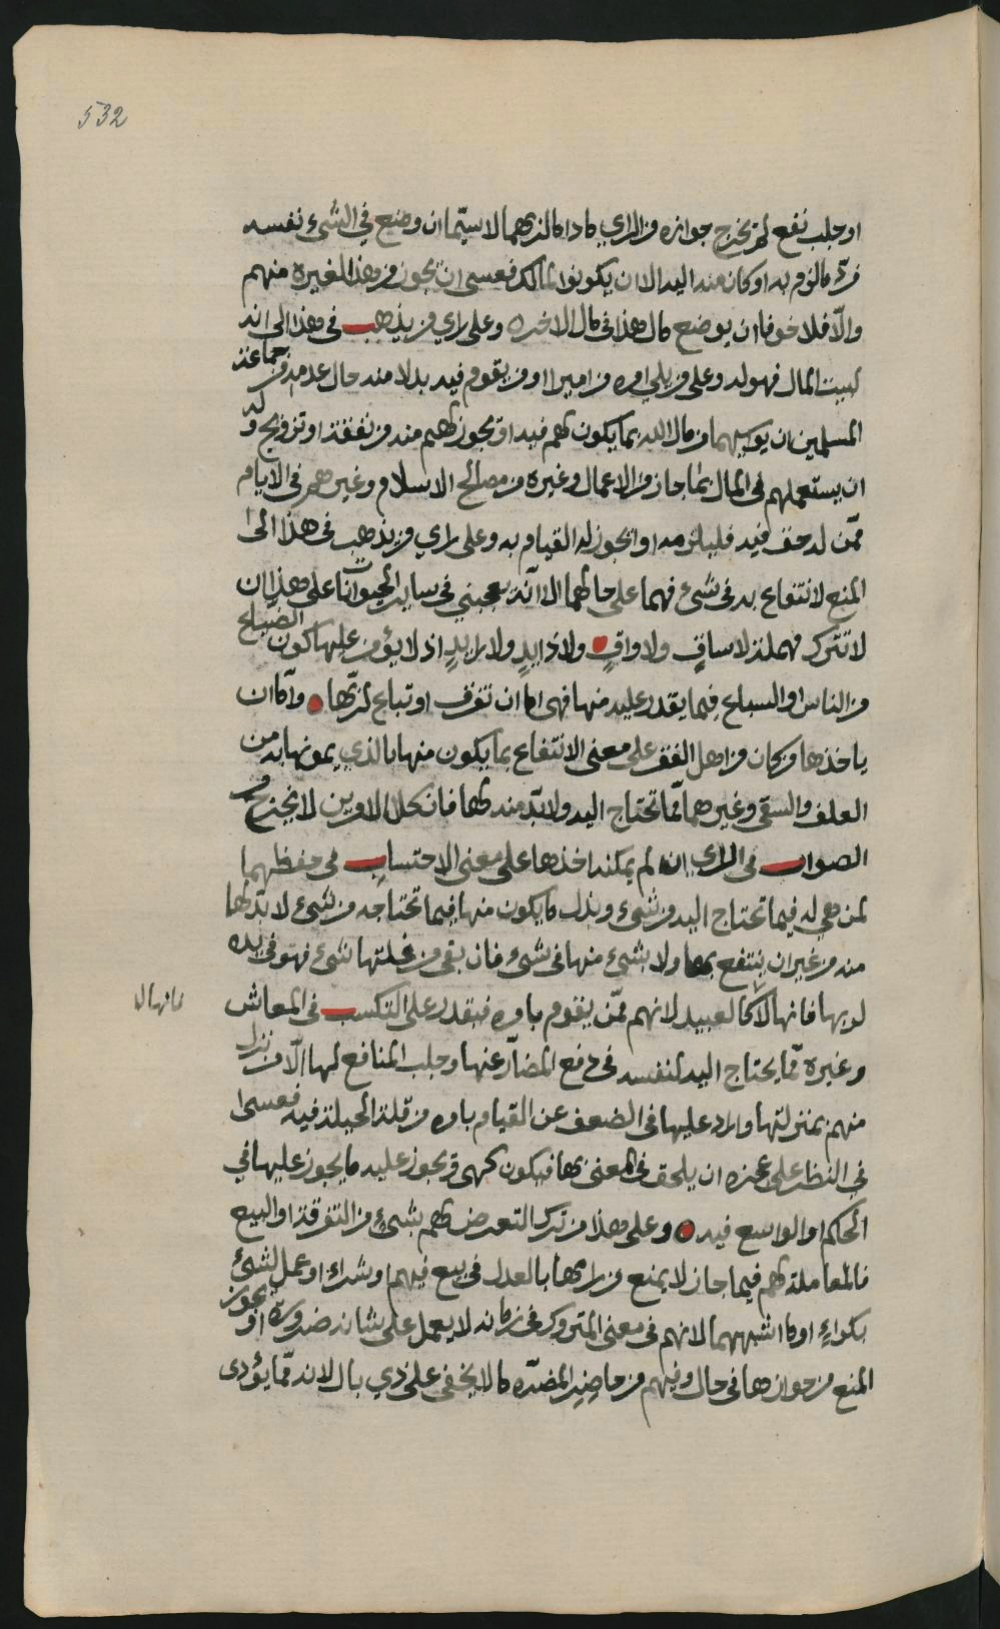 532
او جلب نفع لم يخرج جوازه من الراي ما دام الزمهما لا سيما ان وضع في الشيء نفسه
فرد ما لزم به او كان عند اليد الا ان يكونوا لمالك فعسى ان يجوز من هذا لغيره منهم
والا فلا خوفا ان يوضع مال هذا في مال الاخره وعلى راي من يذهب في هذا الى انه
لبيت المال فهو له وعلى من يلي امره من امير او من يقوم فيه بدلا منه حال عدمه من جماعة
المسلمين ان يونهما من مال الله بما يكون لهم فيه او يجوز لهم منه من نفقة او تزويج وله
ان يستعملهم في المال بما جاز من الاعمال وغيره من مصالح الاسلام وغيرهم في الايام
ممن له حق فيه فيلزمه او يجوز له القيام به وعلى راي من يذهب في هذا الى
المنع لانتفاع به في شيء فهما على حالهما الا انه يعجبني في ساير الحيوانات على هذا ان
لا تترك مهملة لا ساق ولا واق ولا ذايد ولا رايد اذ لا يؤمن عليها كون الضياع
من الناس او السباع فيما يقدر عليه منها فهي اما ان تغرق او تباع لربها واما ان
ياخذها من كان من اهل الفقر على معنى الانتفاع بما يكون منها بالذي يمونها به من
العلف والسقي وغيرهما مما تحتاج اليه ولا بد منه لها فان كلا الامرين لا يخرج من
الصواب في الراي ان لم يمكنه اخذها على معنى الاحتساب في حفظهما
لمن هي له فيما تحتاج اليه من شيء وبذل ما يكون منها فيما تحتاجه من شيء لا بد لها
منه من غير ان ينتفع بها ولا بشيء منها في شيء فان بقي من غلتها شيء فهو في يده
لربها فانها لا كالعبيد لانهم ممن يقوم بامره فيقدر على التكسب في المعاش
فانها لا
وغيره مما يحتاج اليه لنفسه في دفع المضار عنها وجلب المنافع لها الا من نزل
منهم بمنزلتها وازاد عليها في الضعف عن القيام بامره من قلة الحيلة فيه فعسى
في النظر على عجزه ان يلحق في المعنى بها فيكون كهي ويجوز عليه ما يجوز عليها في
الحكم او الواسع فيه وعلى هذا من ترك التعرض لهم بشيء من التفرقة او البيع
فالمعاملة لهم فيما جاز لا يمنع من راها بالعدل في بيع فيهم او شراء او عمل لشيء
بكراء او ما اشبههما لانهم في معنى المتروك في زمانه لا يعمل على شانه ضرورة او يجوز
المنع من جوازها في حال وفيهم من حاضر المضرة ما لا يخفى على ذي بال لانه مما يؤدي